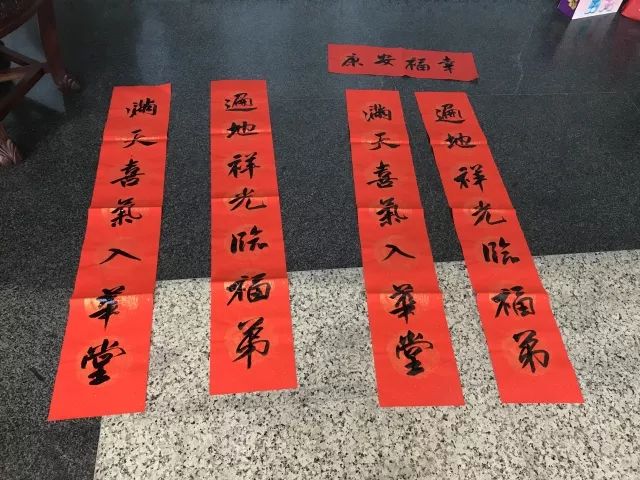 康安福幸
滿天喜氣入華堂
遍地祥光臨福第
滿天喜氣入華堂
遍地祥光臨福第